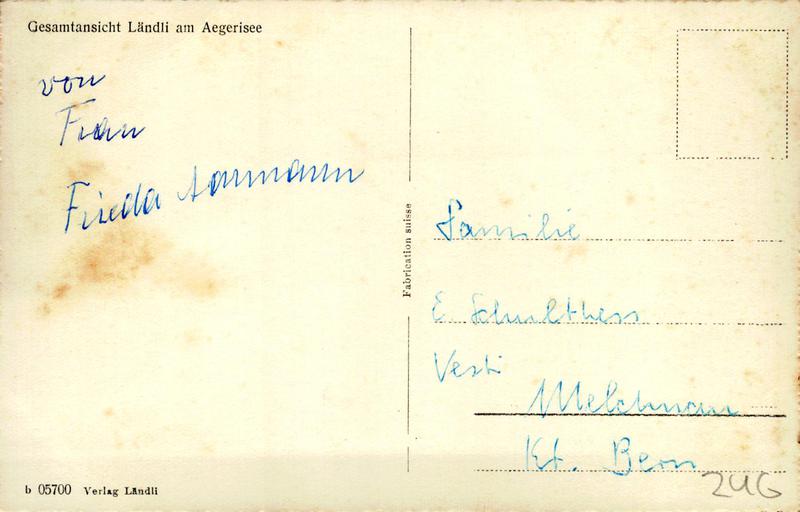 Gesamtansicht Ländli am Aegerisee
von
Frau
Frieda
Fabrication suisse
Familie
E. Schulthess
Vesti
Melchnau
Kt. Bern
ZUG
b 05700 Verlag Ländli